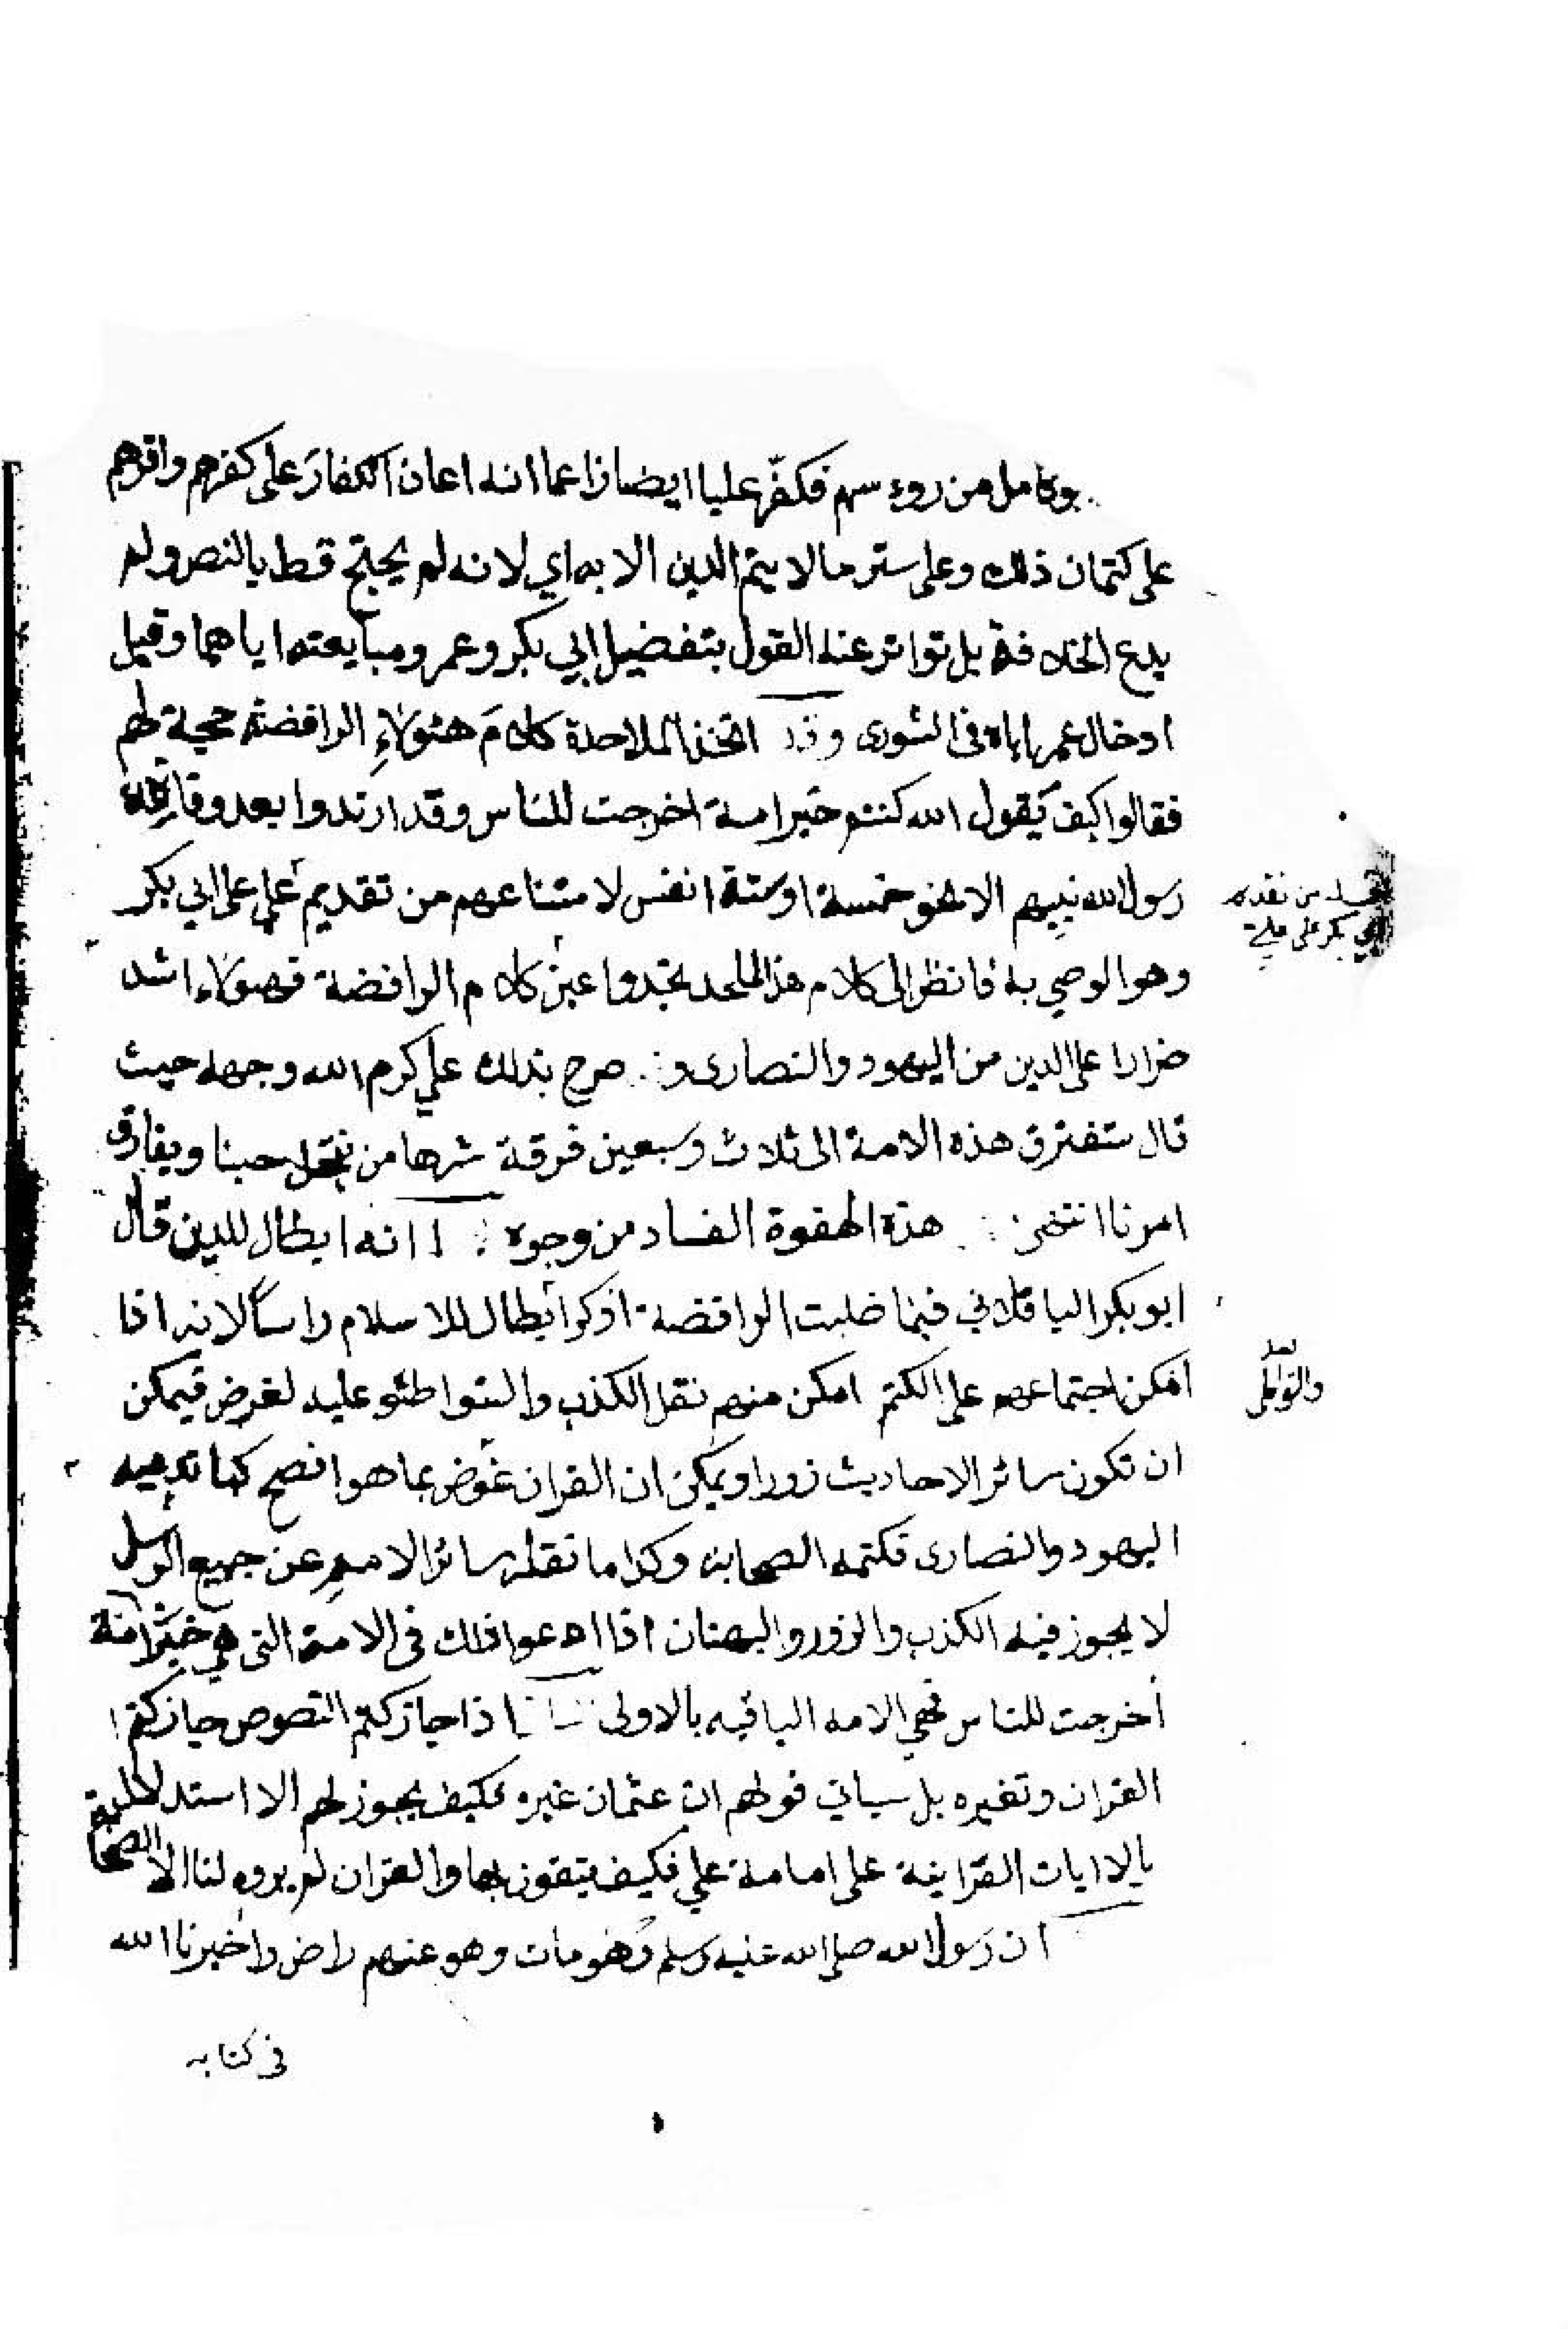 بوكامل من روءسهم فكفّر عليا ايضا زاعما انه اعان الكفار على كفرهم واقرهم
على كتمان ذلك وعلى ستر ما لا يتم الدين الا به اي لانه لم يحتج قط بالنص ولم
يدع الخلافة بل تواتر عنه القول بتفضيل ابي بكر وعمر ومبايعته اياهما وقبل
ادخال عمر اياه في الشورى وقد اتخذ الملاحدة كلام هئولاء الرافضة حجة لهم
فقالوا كيف يقول الله كنتم خير امة اخرجت للناس وقد ارتدوا بعد وفاة
رسول الله نبيهم الا نحو خمسة او ستة انفس لامتناعهم من تقديم علي على ابي بكر
وهو الوصي به فانظر الى كلام هذا الملحد تجدوا عين كلام الرافضة فهولاء اشد
ضرارا على الدين من اليهود والنصارى و صرح بذلك علي كرم الله وجهه حيث
قال ستفترق هذه الامة الى ثلاث وسبعين فرقة شرها من ينتحل حبنا ويفارق
امرنا انتهى هذه الهفوة الفساد من وجوه ا انه ابطال للدين قال
ابو بكر الباقلاني فيما ذهبت الرافضة ابطال للاسلام راسا لانه اذا
امكن اجتماعهم على الكتم امكن منهم نقل الكذب والتواطئو عليه لغرض فيمكن
ان تكون سائر الاحاديث زورا ويمكن ان القران عوض بما هو افصح كما تدعيه
اليهود والنصارى فكتمه الصحابة وكذا ما نقله سائر الامم عن جميع الرسل
لا يجوز فيه الكذب والزور والبهتان اذا ادعوا ذلك في الامة التي هي خير امة
أخرجت للناس فهي الامه الباقيه بالاولى اذا جاز كتم النصوص جاز كتم
القران وتغيره بل سياتي قولهم ان عثمان غيره فكيف يجوز لهم الا استدلال
بالاايات القراينة على امامة علي فكيف يتفوز بها والقران لم يروه لنا الا الصحابة
ان رسول الله صلى الله عليه وسلم مات وهو عنهم راض واخبرنا الله
من تقديم
ابي بكر على علي
والتواطى
في كتابه